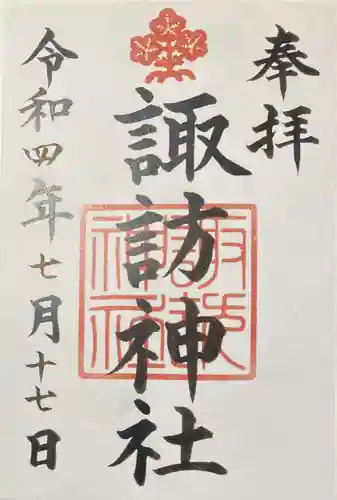 奉拝
諏訪神社
諏訪神社
令和四年七月十七日